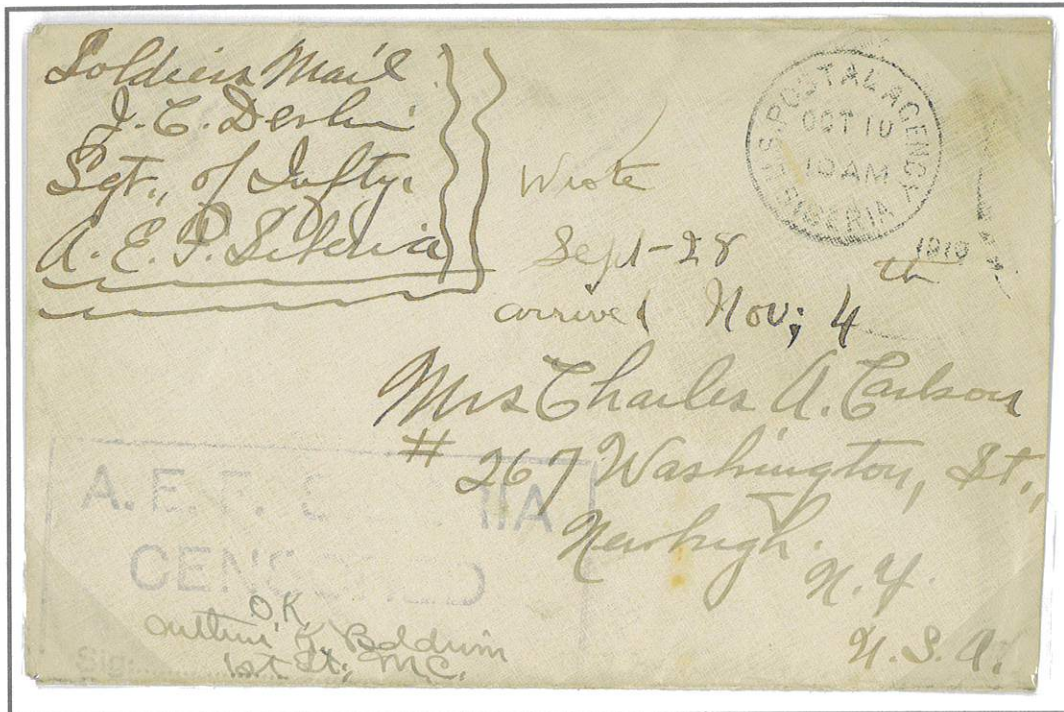 Soldiers Mail
J. C. Devlin
Sgt., of Infty.
A. E. F. Siberia
U.S. POSTAL AGENCY
OCT 10
10 AM
SIBERIA
1919
Wrote
Sept-28
th
arrived Nov; 4
Mrs Charles A. Carlson
# 267 Washington, St.,
Newburgh.
N. Y.
U. S. A.
A. E. F. S IA
CENSORED
O.K.
Baldwin
1st Lt., M.C.
Sig: